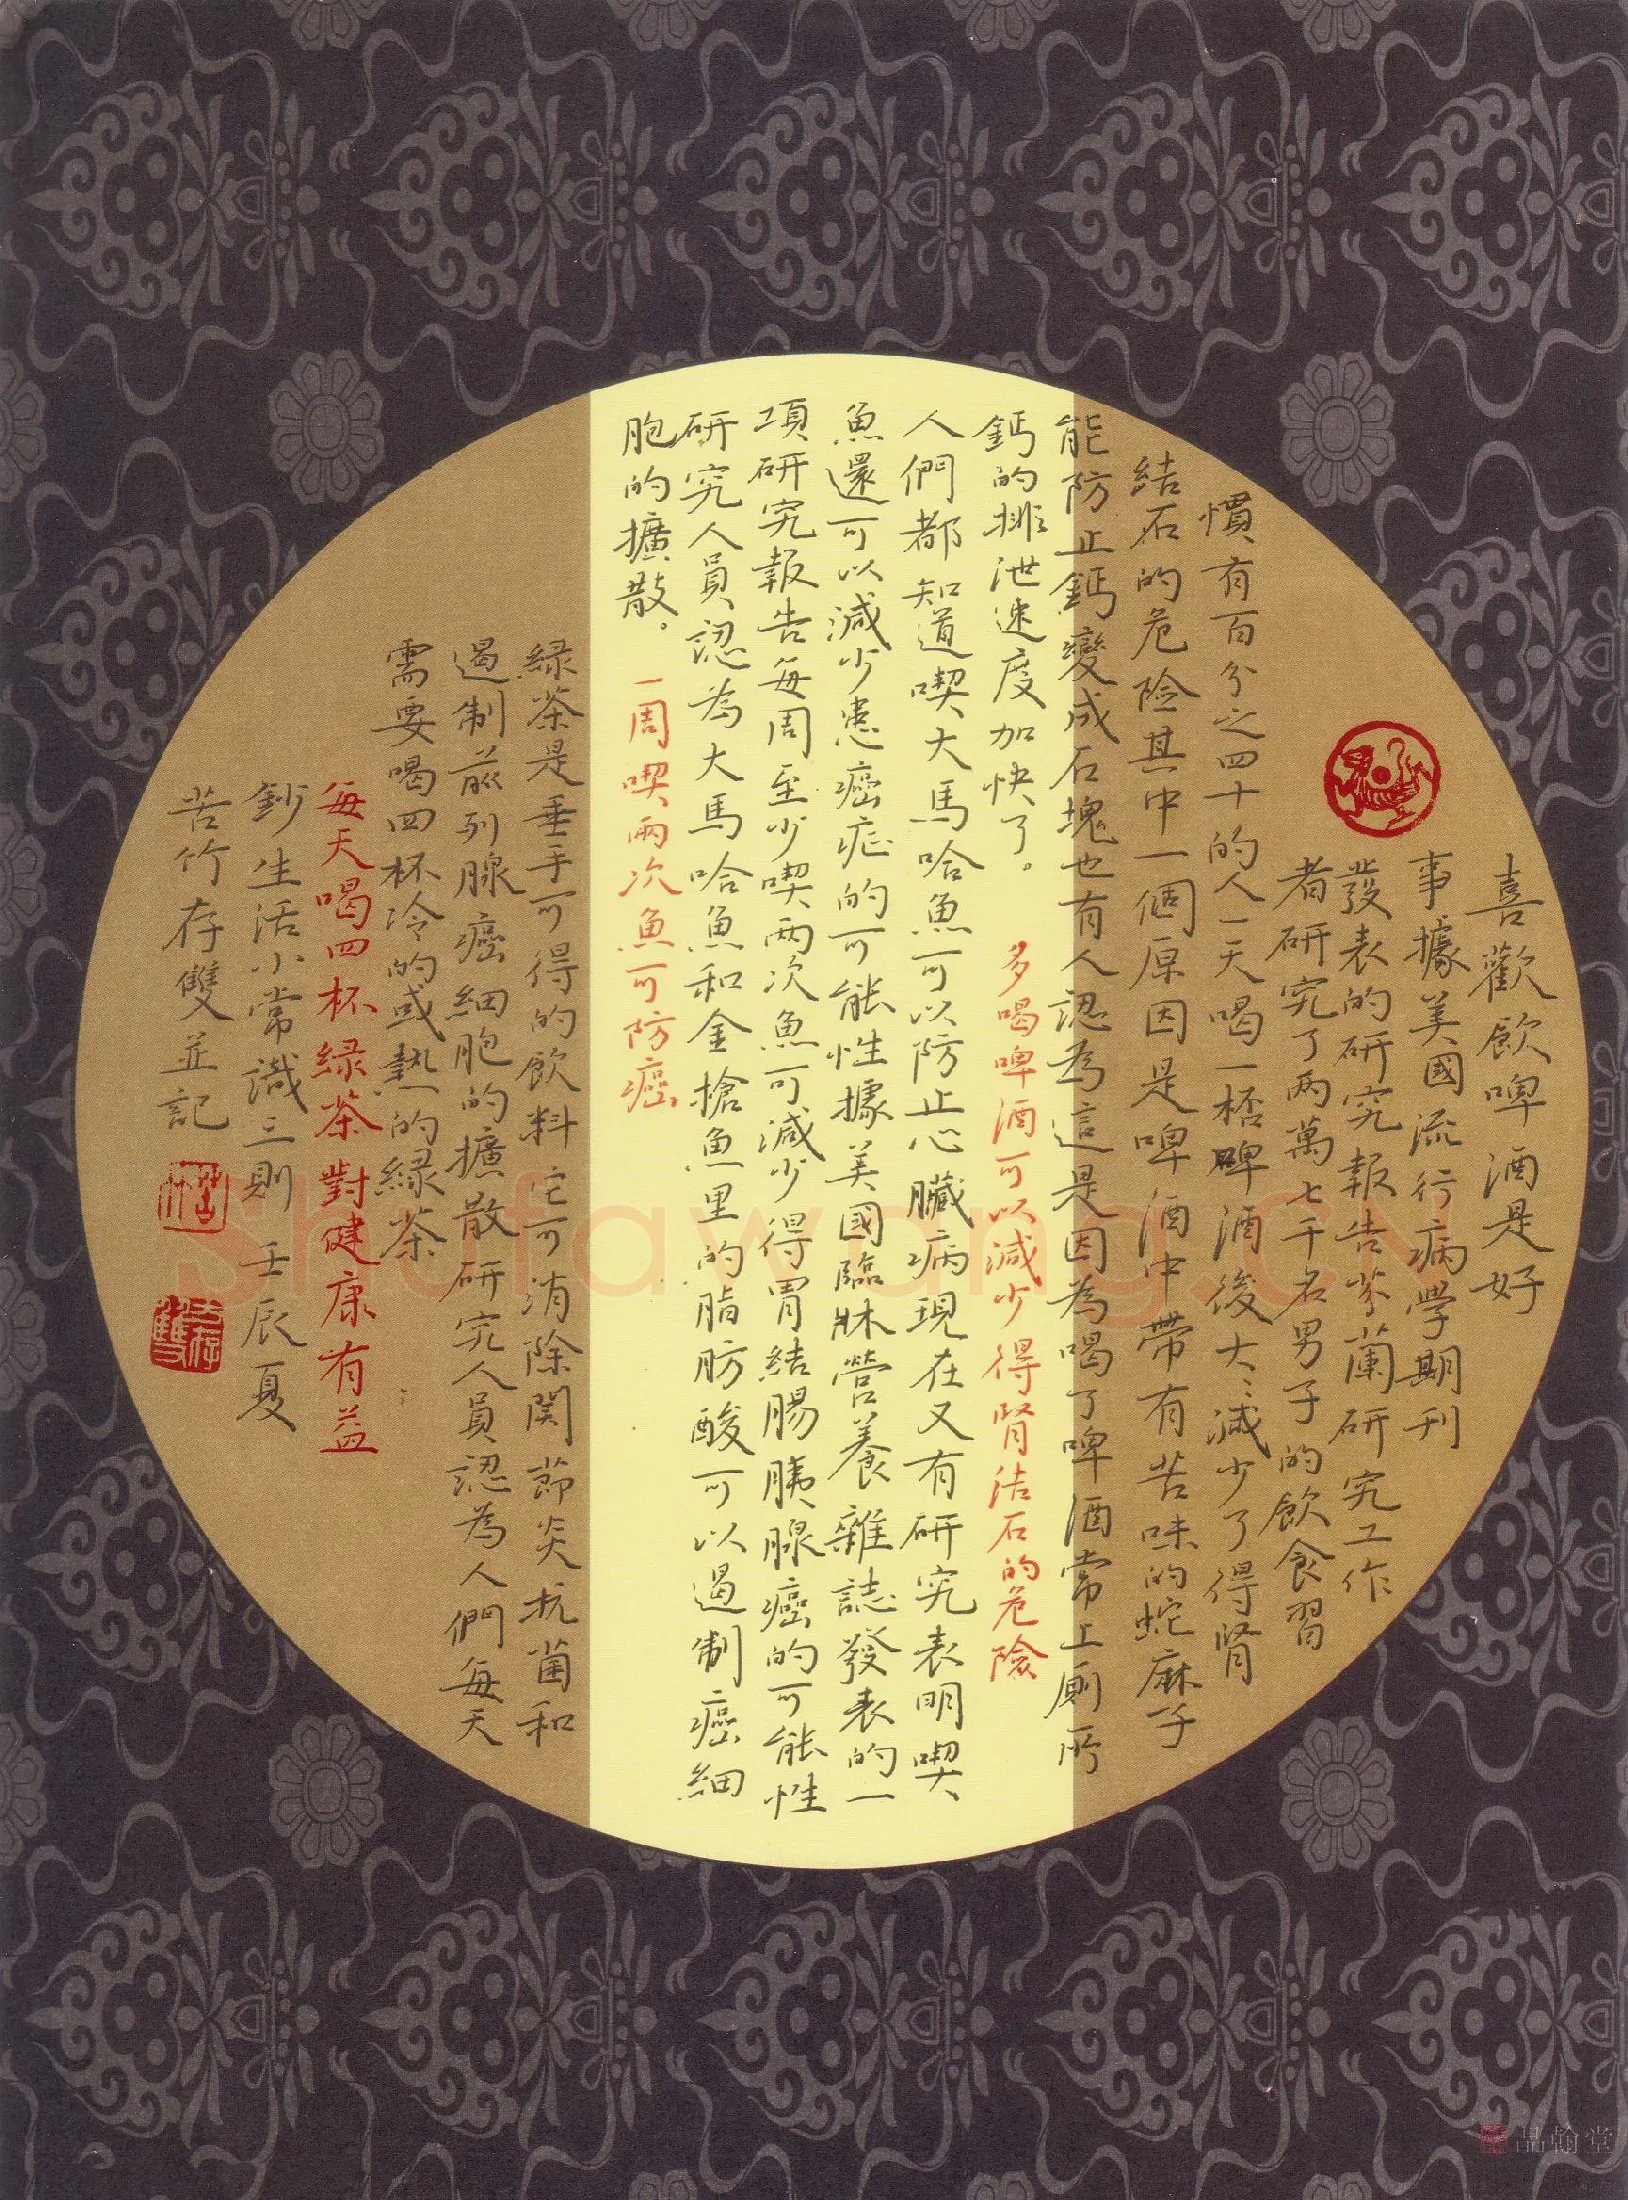 喜歡飲啤酒是好
事據美國流行病學期刊
發表的研究報告芬蘭研究工作
者研究了两萬七千名男子的飲食習
慣有百分之四十的人一天喝一桮啤酒後大大減少了得腎
結石的危险其中一個原因是啤酒中帶有苦味的蛇麻子
能防止鈣變成石塊也有人認為這是因為喝了啤酒常上廁所
鈣的排泄速度加快了。 多喝啤酒可以減少得腎结石的危險
人們都知道喫大馬哈魚可以防止心臟病現在又有研究表明喫
魚還可以減少患癌症的可能性據美國臨牀營養雜誌發表的一
項研究報告每周至少喫两次魚可減少得胃結腸胰腺癌的可能性
研究人員認為大馬哈魚和金槍魚里的脂肪酸可以遏制癌細
胞的擴散。 一周喫兩次魚可防癌
綠茶是垂手可得的飲料它可消除関節炎抗菌和
遏制前列腺癌細胞的擴散研究人員認為人們每天
需要喝四杯冷的或熱的綠茶
每天喝四杯綠茶對健康有益
鈔生活小常識三則 壬辰夏
苦竹存雙並記
shufawang.CN
品翰堂